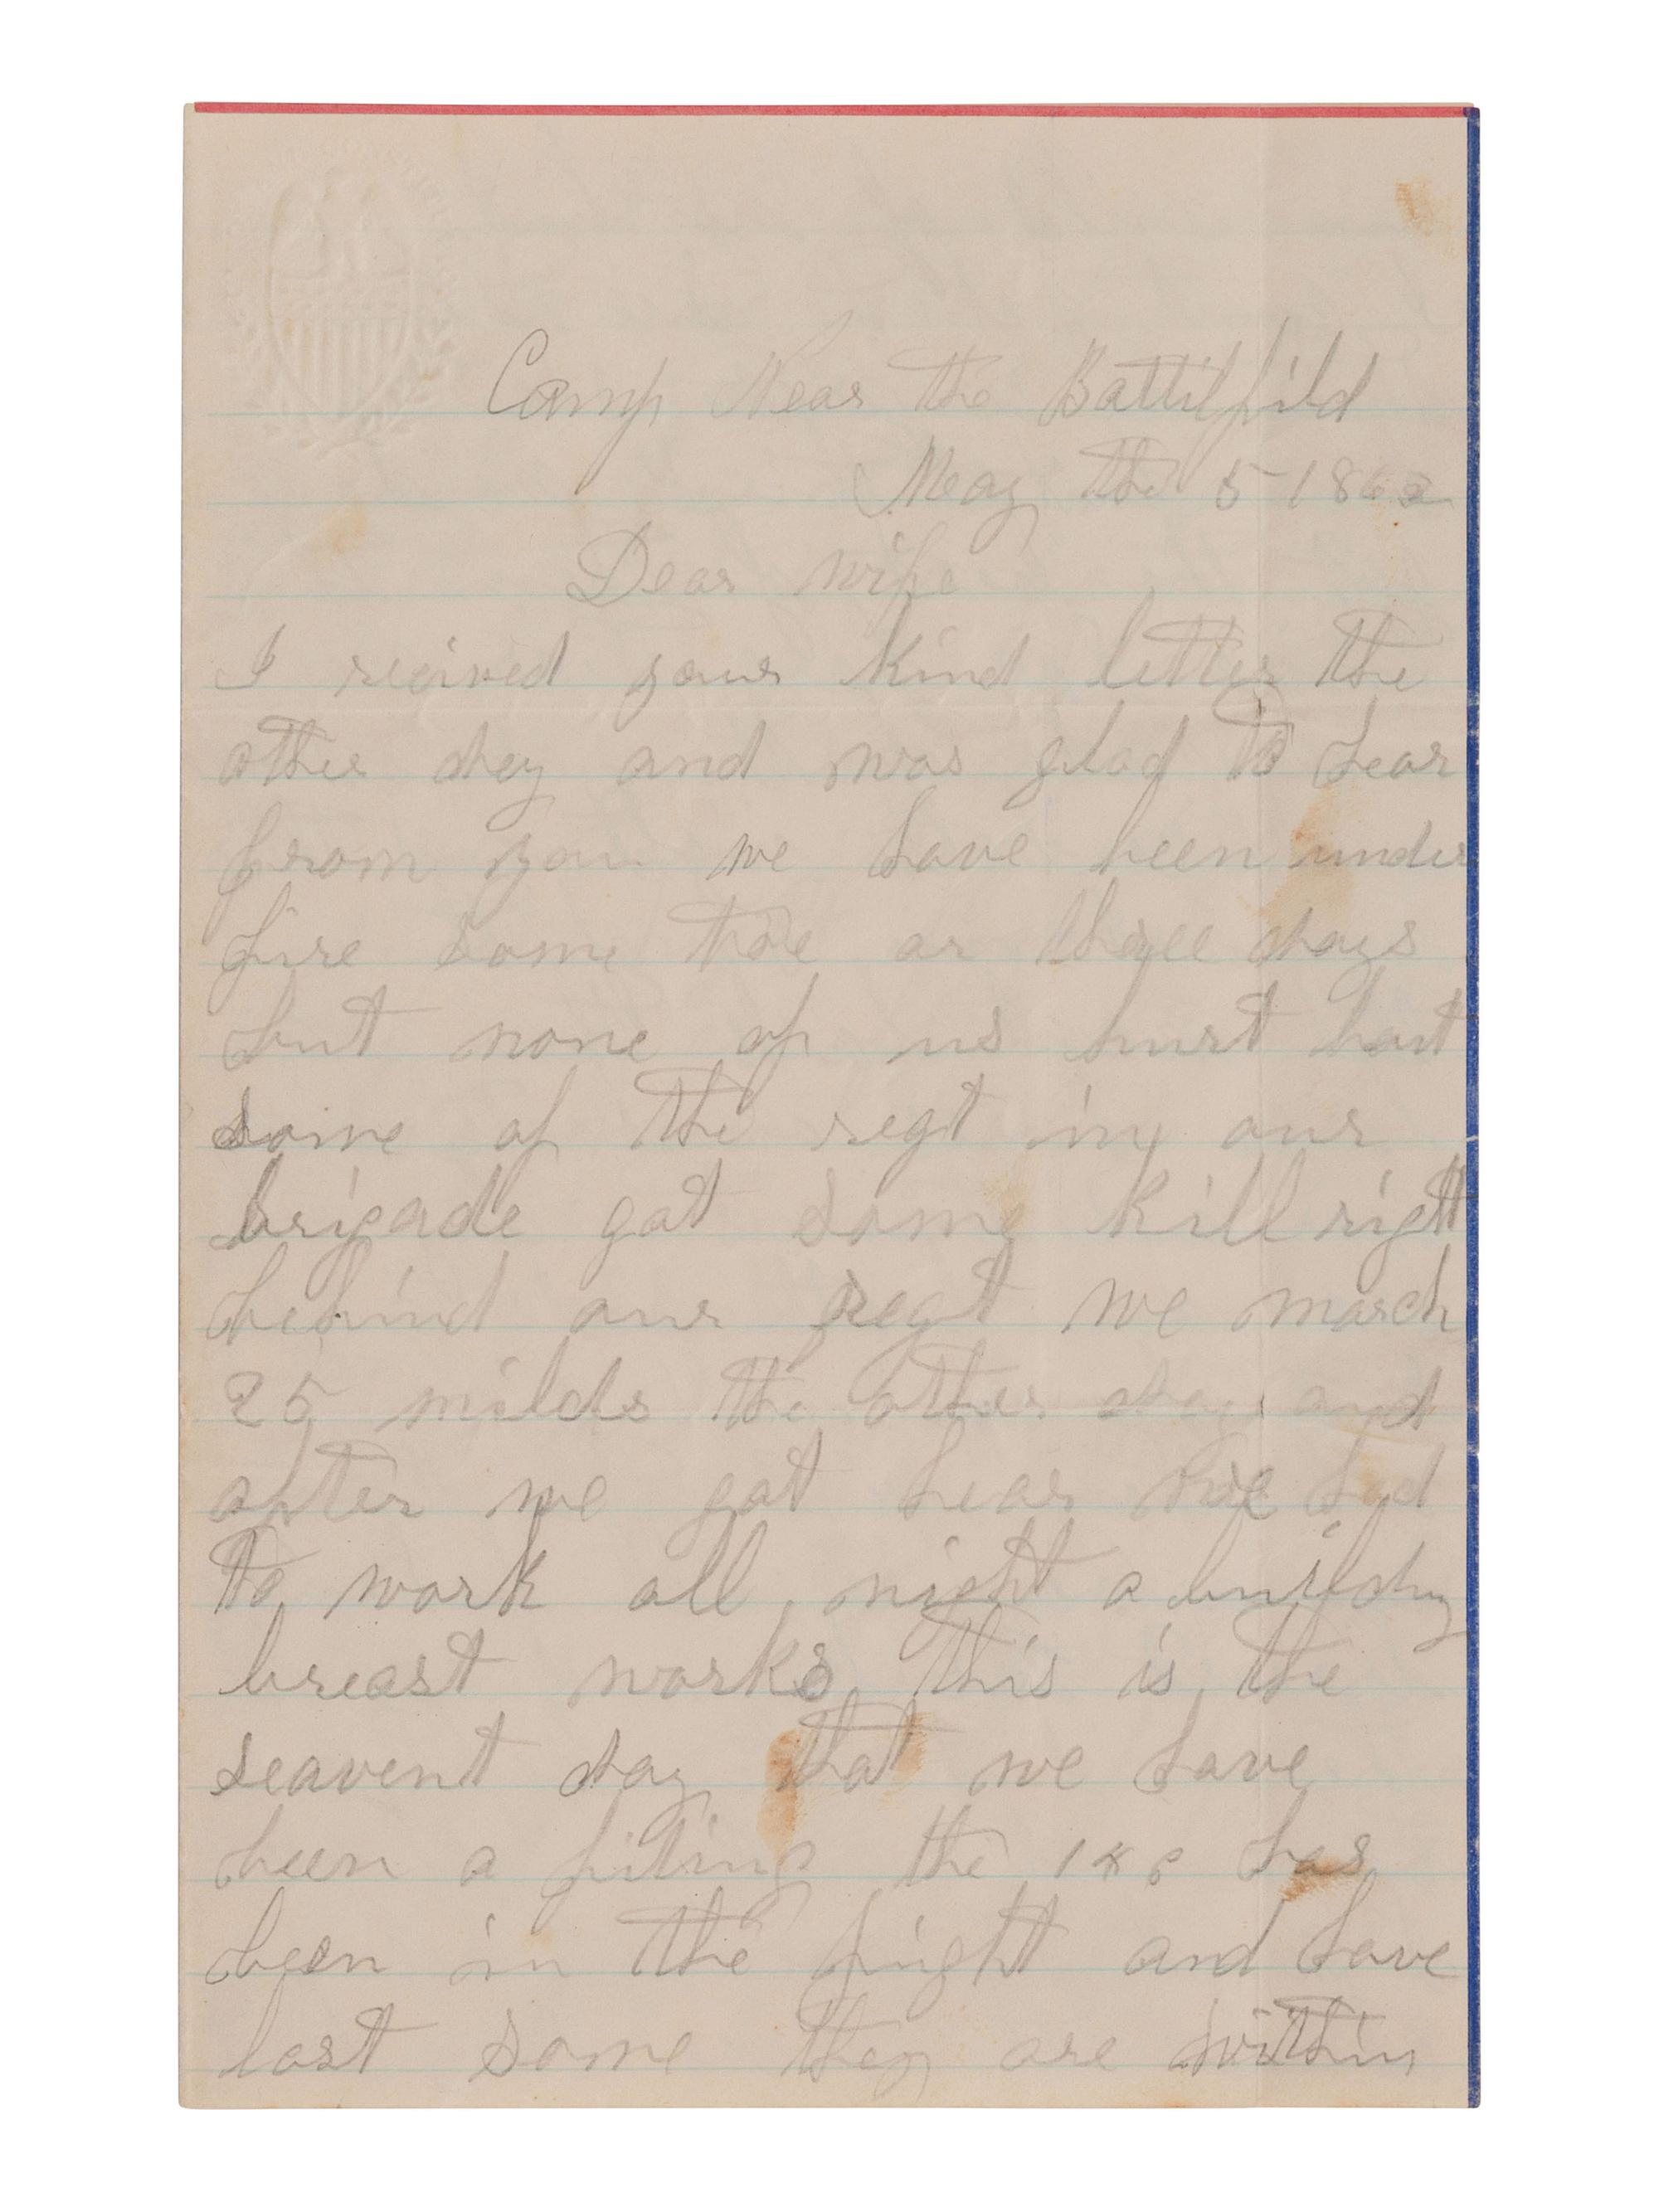 Camp Near the Battilfild
May the 5 1863
Dear wife
I reeived your kind letter the
other day and was glad to hear
from you we have been under
fire some two or three days
but none of us hurt but
some of the regt in our
brigade got some kill right
behind our regt we march
25 milds the other day and
after we got hear we had
to work all night a building
breast works this is the
seavent day that we have
been a fiting the has
been in the fright and have
lost some they are within